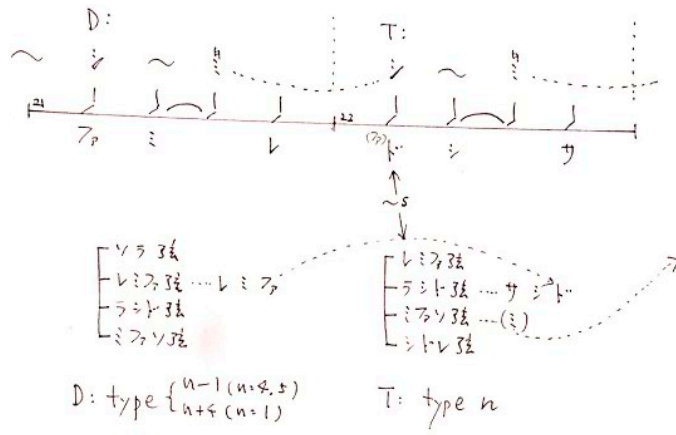 D: T:
～ ミ ～ ミ ミ ～ ミ
21 22
ファ ミ レ (ファ) ド シ サ
～s
ソラ弦
レミファ弦 … レ ミ ファ
ラシド弦
ミファソ弦
レミファ弦
ラシド弦 … サ シ ド
ミファソ弦 …(ミ)
シドレ弦
D: type { n-1 (n=4.5)
n+4 (n=1)
T: type n